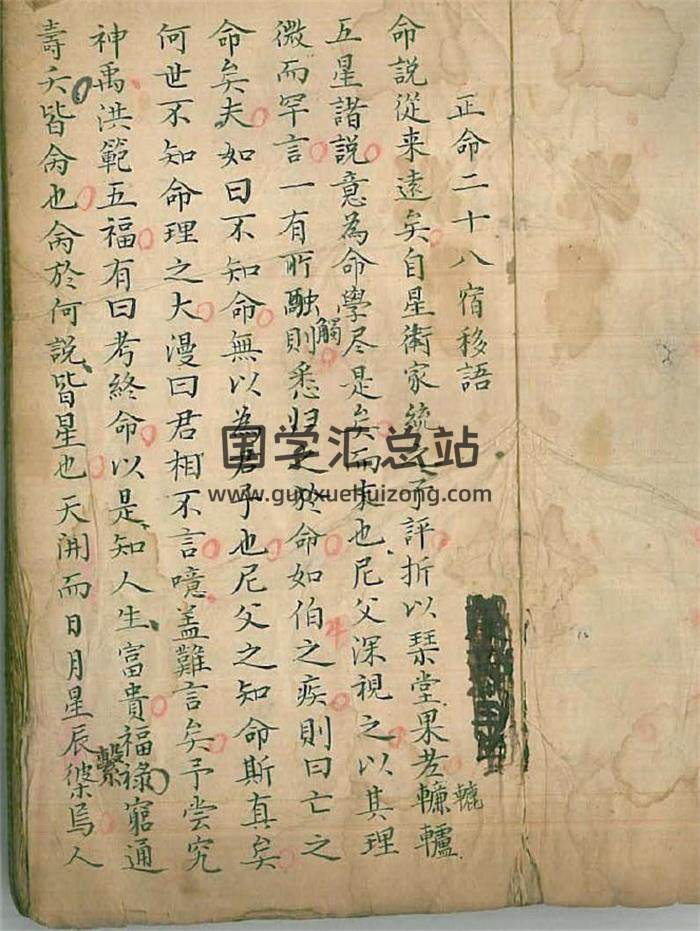 正命二十八宿移語
命說從来遠矣自星術家統之子評折以琹堂果老轆轤
五星諸說意為命學尽是矣而未也尼父深視之以其理
微而罕言一有所融則悉归之於命如伯之疾則曰亡之
觸
命矣夫如曰不知命無以為君子也尼父之知命斯真矣
何世不知命理之大漫曰君相不言噫盖難言矣予尝究
神禹洪範五福有曰考終命以是知人生富貴福祿窮通
壽夭皆命也命於何說皆星也天開而日月星辰焉人
繫
国学汇总站
www.guoxuehuizong.com